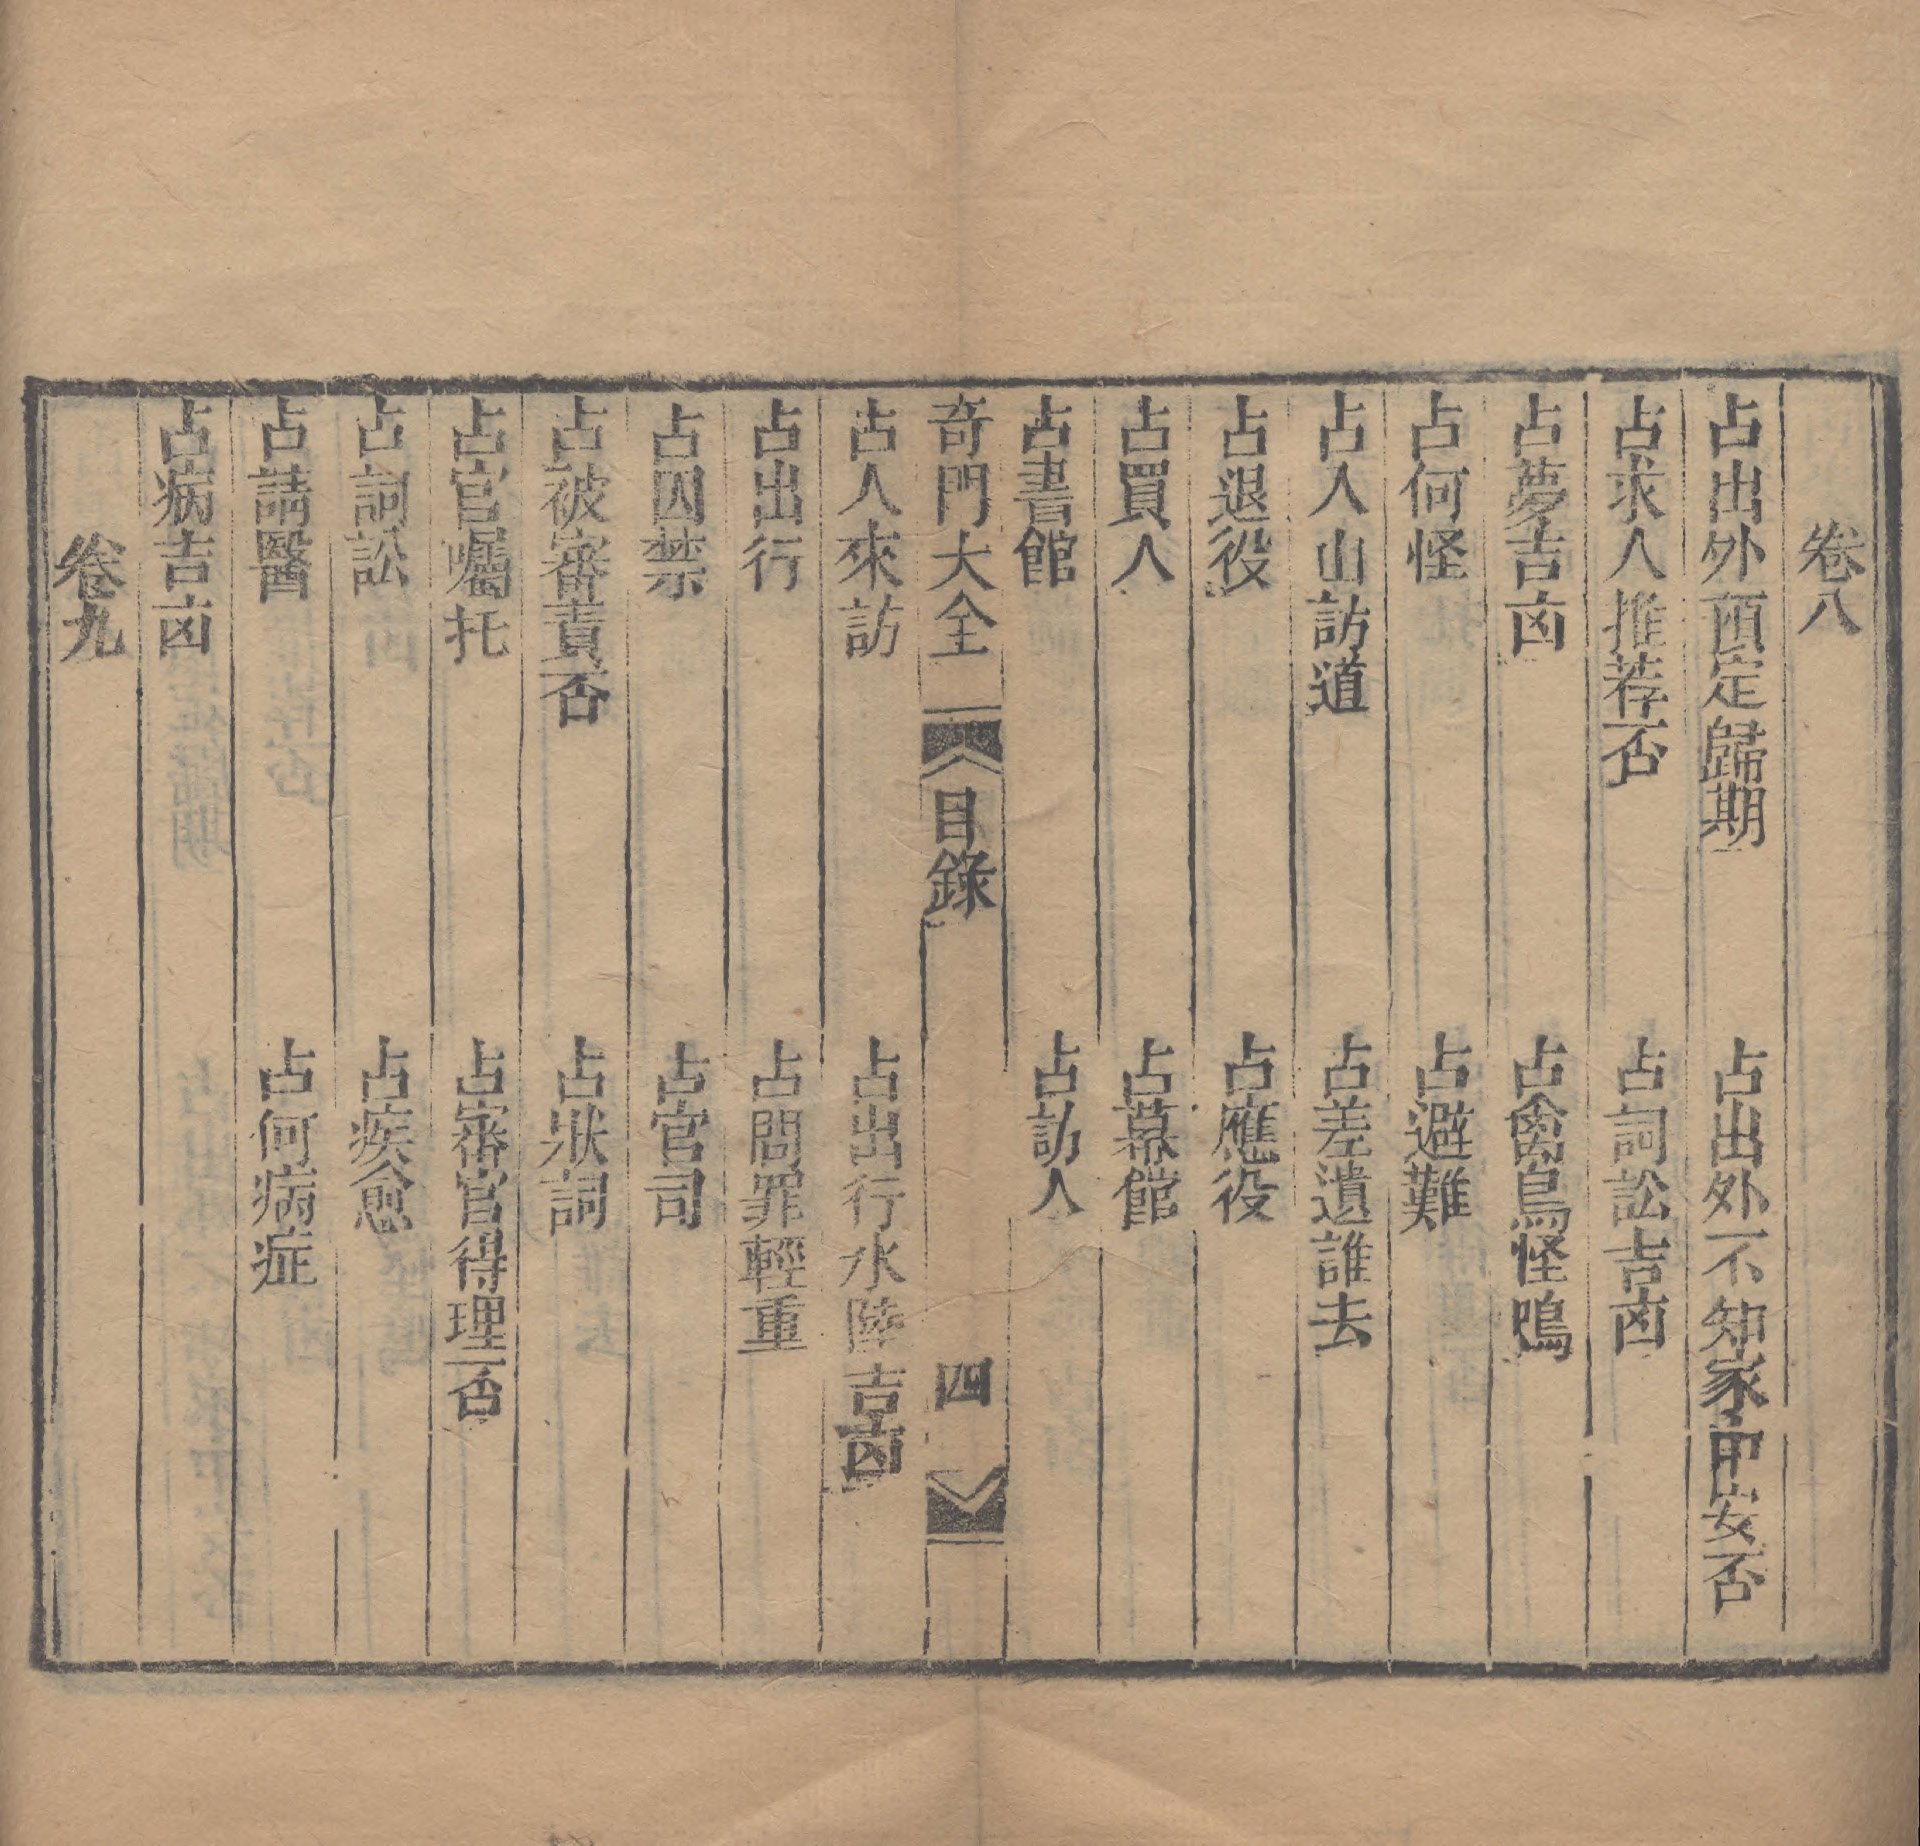 卷八
占出外預定歸期　占出外不知家中安否
占求人推荐否　占詞訟吉凶
占夢吉凶　占禽鳥怪鳴
占何怪　占避難
占入山訪道　占差遣誰去
占退役　占應役
占買人　占幕館
占書館　占訪人
奇門大全　目錄　四
占人來訪　占出行水陸吉凶
占出行　占問罪輕重
占囚禁　占官司
占被審責否　占狀詞
占官囑托　占審官得理否
占詞訟　占疾愈
占請醫　占何病症
占病吉凶
卷九